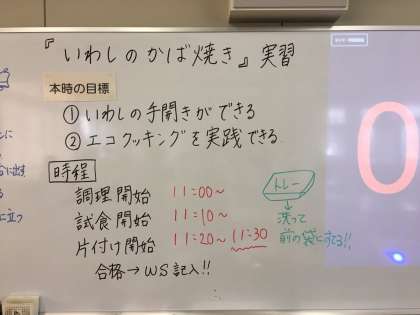 『いわしのかば焼き』実習
本時の目標
①いわしの手開きができる
②エコクッキングを実践できる
時程
調理開始 11:00〜
試食開始 11:10〜
片付け開始 11:20〜11:30
合格→WS記入!!
トレー
↓
洗って
前の袋にすてる!!
に出す
に立つ
0